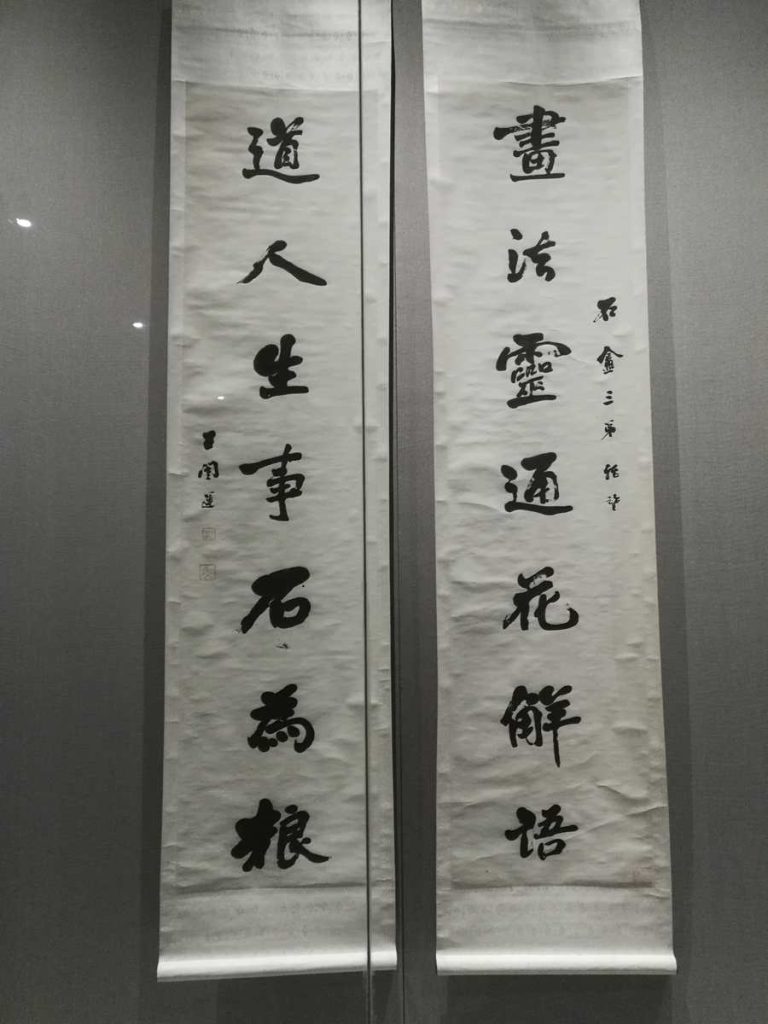 石盦三弟雅
畫法靈通花解語
道人生事石為粮
王闓運